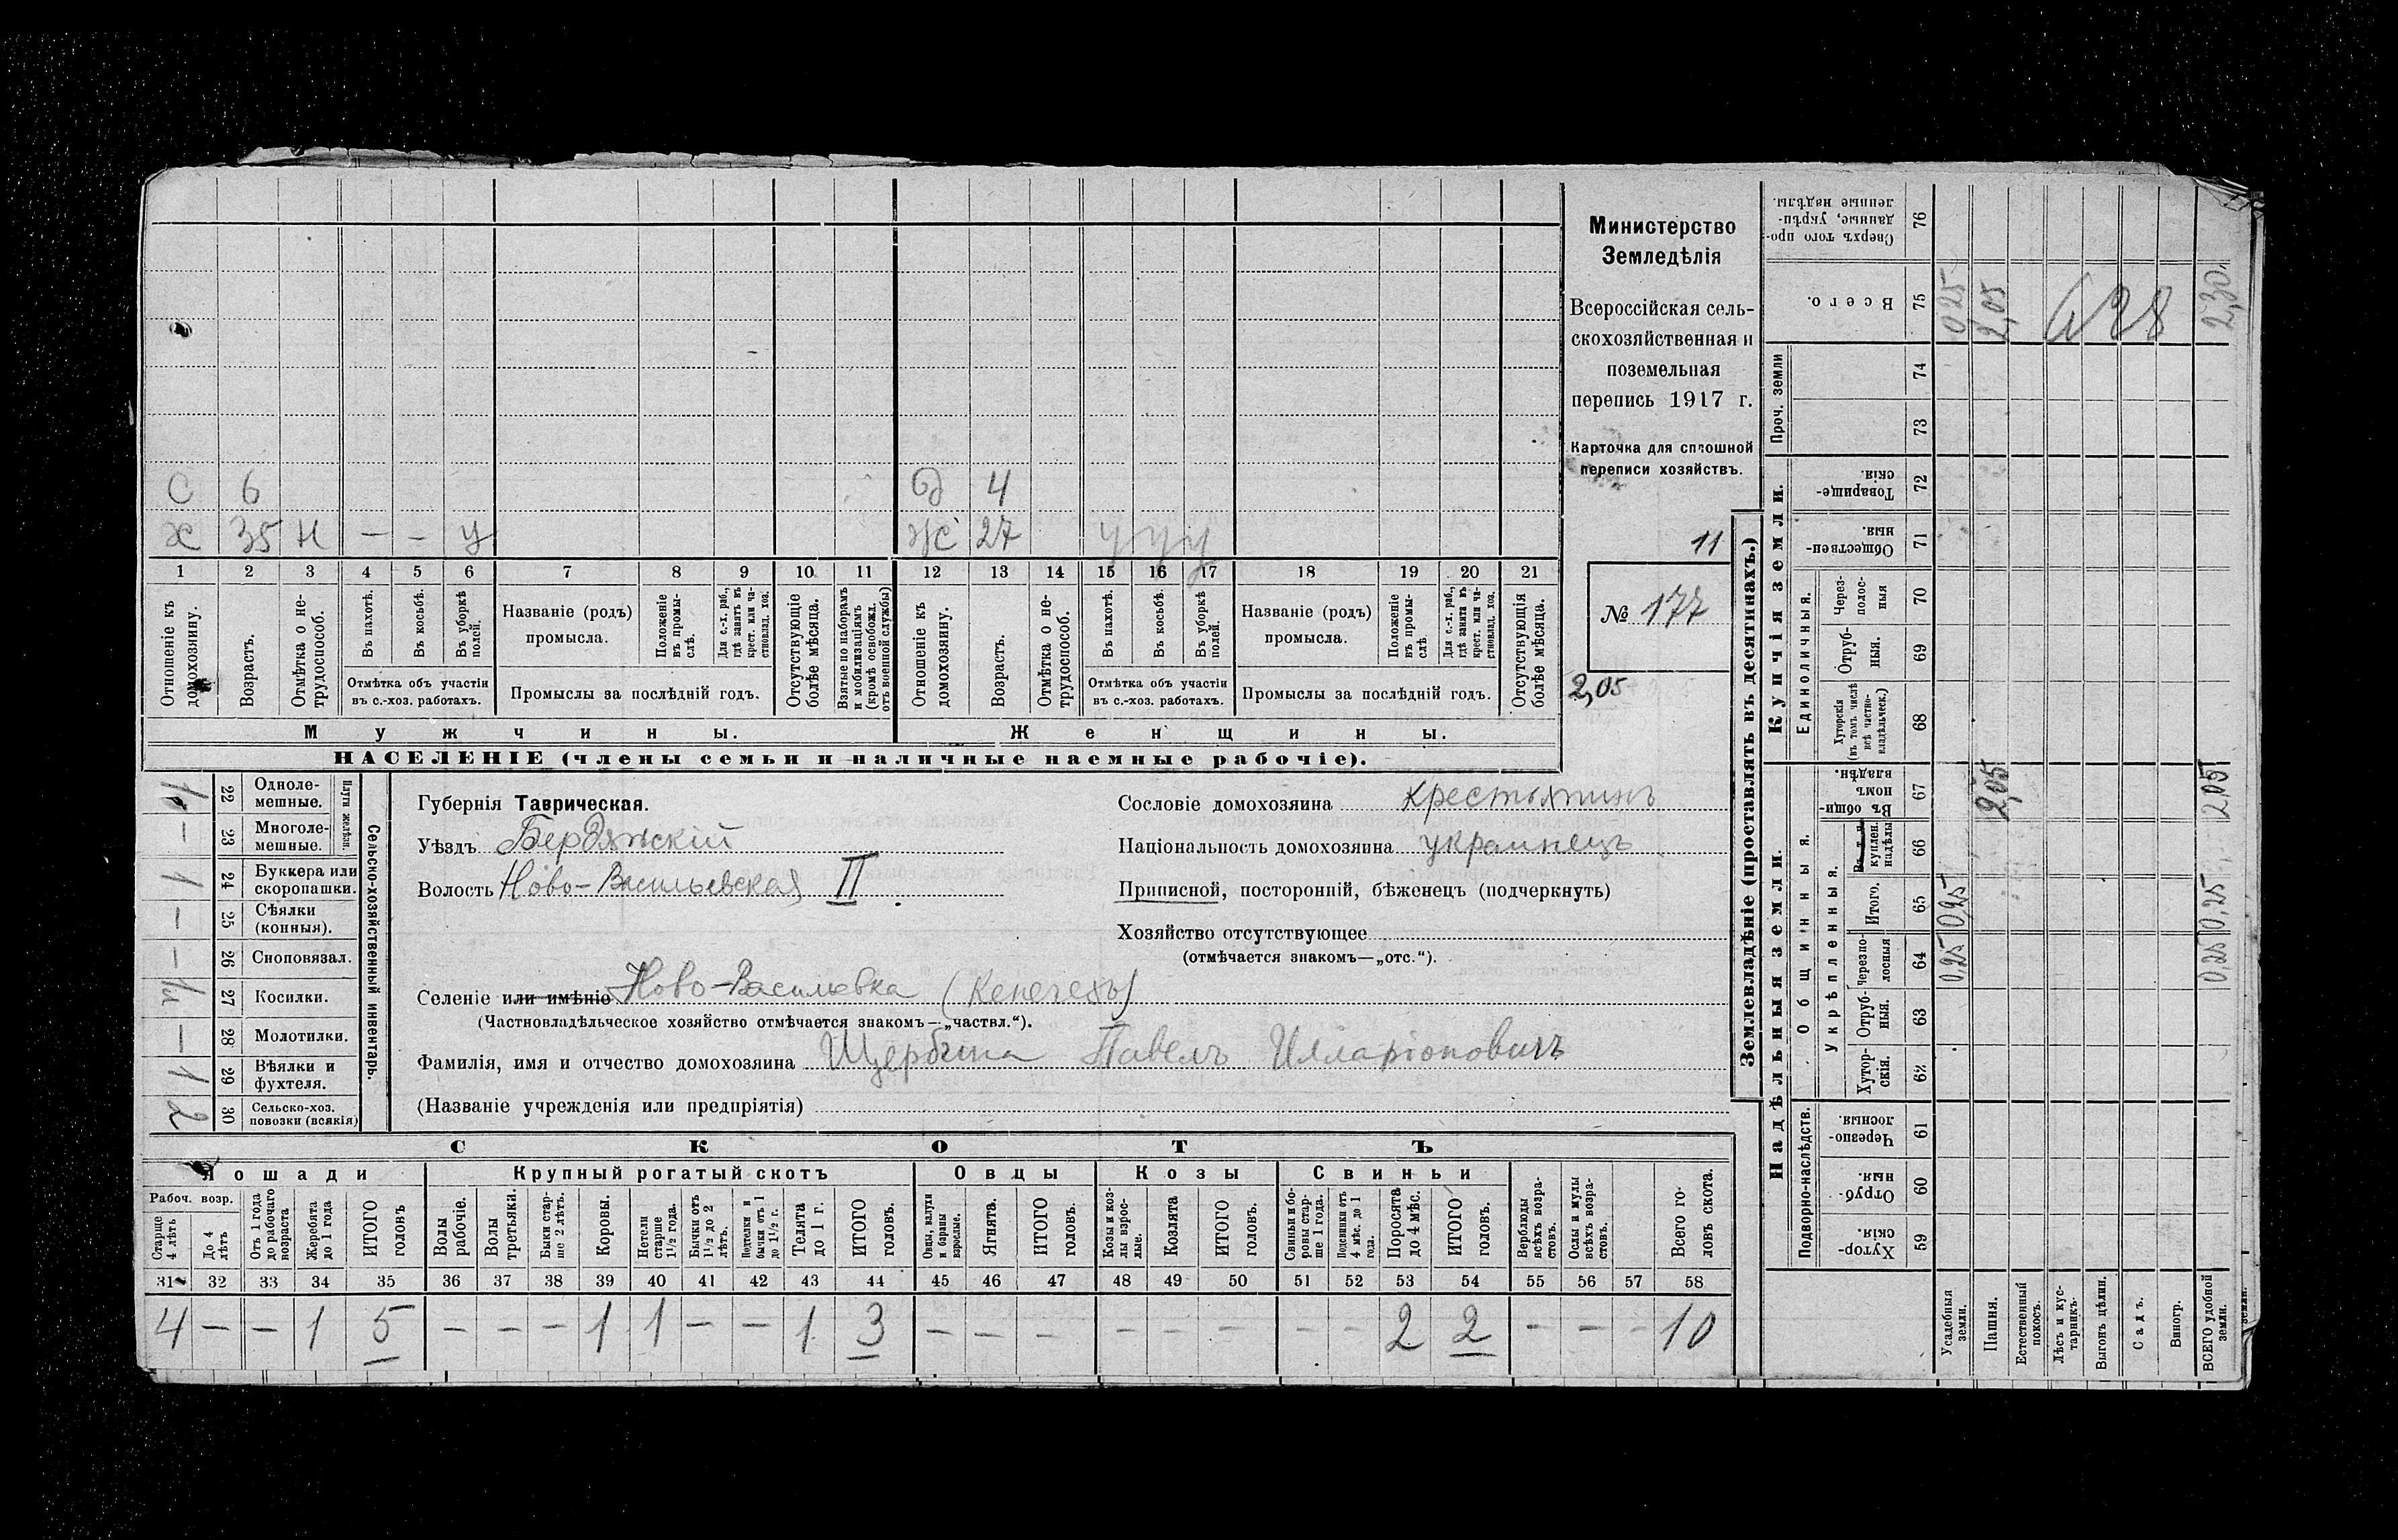 С 6 д 4
Х 35 Н — — у Ж 27 у у у
1 2 3 4 5 6 7 8 9 10 11 12 13 14 15 16 17 18 19 20 21
Отношеніе къ домохозяину.
Возрастъ.
Отмѣтка о не-
трудоспособ.
Въ пахотѣ.
Въ косьбѣ.
Въ уборкѣ
полей.
Отмѣтка объ участіи
въ с.-хоз. работахъ.
Названіе (родъ)
промысла.
Положеніе
въ промы-
слѣ.
Для с.-х. раб.,
гдѣ занятъ въ
крест. или ча-
стновлад. хоз.
Промыслы за послѣдній годъ.
Отсутствующіе
болѣе мѣсяца.
Взятые по наборамъ
и мобилизаціямъ
(кромѣ освобожд.
отъ военной службы)
Отношеніе къ
домохозяину.
Возрастъ.
Отмѣтка о не-
трудоспособ.
Въ пахотѣ.
Въ косьбѣ.
Въ уборкѣ
полей.
Отмѣтка объ участіи
въ с.-хоз. работахъ.
Названіе (родъ)
промысла.
Положеніе
въ промы-
слѣ
Для с.-х. раб.,
гдѣ занята въ
крест. или ча-
стновлад. хоз.
Промыслы за послѣдній годъ.
Отсутствующія
болѣе мѣсяца.
Мужчины. Женщины.
НАСЕЛЕНІЕ (члены семьи и наличные наемные рабочіе).
Министерство
Земледѣлія
Всероссійская сель-
скохозяйственная и
поземельная
перепись 1917 г.
Карточка для сплошной
переписи хозяйствъ.
11
№ 177
2,05
Сельско-хозяйственный инвентарь.
Плуги желѣзн.
1 22 Одноле-
мешные.
— 23 Многоле-
мешные.
1 24 Буккера или
скоропашки.
— 25 Сѣялки
(конныя).
— 26 Сноповязал.
27 Косилки.
— 28 Молотилки.
1 29 Вѣялки и
фухтеля.
2 30 Сельско-хоз.
повозки (всякія)
Губернія Таврическая.
Уѣздъ Бердянскій
Волость Ново-Васильевская II
Сословіе домохозяина крестьянинъ
Національность домохозяина украинецъ
Приписной, посторонній, бѣженецъ (подчеркнуть)
Хозяйство отсутствующее
(отмѣчается знакомъ—„отс.“).
Селеніе или имѣніе Ново-Васильевка
(Частновладѣльческое хозяйство отмѣчается знакомъ—„частвл.“).
Фамилія, имя и отчество домохозяина Щербина Павелъ Илларіоновичъ
(Названіе учрежденія или предпріятія)
СКОТЪ
Лошади Крупный рогатый скотъ Овцы Козы Свиньи
Рабоч. возр.
Старше
4 лѣтъ
До 4
лѣтъ
Отъ 1 года
до рабочаго
возраста
Жеребята
до 1 года
ИТОГО
головъ
Волы
рабочіе.
Волы
третьяки.
Быки стар-
ше 2 лѣтъ.
Коровы.
Нетели
старше
1½ года.
Бычки отъ
1½ до 2
лѣтъ.
Подтелки и
бычки отъ 1
до 1½ г.
Телята
до 1 г.
ИТОГО
головъ.
Овцы, валухи
и бараны
взрослые.
Ягнята.
ИТОГО
головъ.
Козы и коз-
лы взрос-
лые.
Козлята
ИТОГО
головъ.
Свиньи и бо-
ровы стар-
ше 1 года.
Подсвинки отъ
4 мѣс. до 1
года.
Поросята
до 4 мѣс.
ИТОГО
головъ.
Верблюды
всѣхъ возра-
стовъ.
Ослы и мулы
всѣхъ возра-
стовъ.
Всего го-
ловъ скота.
31 32 33 34 35 36 37 38 39 40 41 42 43 44 45 46 47 48 49 50 51 52 53 54 55 56 57 58
4 — — 1 5 — — — 1 1 — — 1 3 — — — — — — — — 2 2 — — — 10
Землевладѣніе (проставлять въ десятинахъ.)
Купчія земли.
Надѣльныя земли.
Сверхъ того про-
данные, укрѣп-
ленные надѣлы.
76
Всего.
75 0,25 2,05 2,30
Проч. земли
74
73
Товарище-
скія.
72
Обществен-
ныя.
71
Единоличныя.
Через-
полос-
ныя
70
Отруб-
ныя.
69
Хуторскія
(въ томъ числѣ
всѣ частно-
владѣльческ.)
68
Общинныя.
Въ общи-
номъ
владѣн.
67 2,05 2,05
Укрѣпленныя.
куплен.
надѣлы
66
Итого.
65 0,25 0,25
Черезпо-
лосныя
64 0,25 0,25
Отруб-
ныя.
63
Хутор-
скія.
62
Подворно-наслѣдств.
Черезпо-
лосныя
61
Отруб-
ныя.
60
Хутор-
скія.
59
Усадебныя
земли.
Пашня.
Естественный
покосъ.
Лѣсъ и кус-
тарникъ.
Выгонъ цѣлин.
Садъ.
Виногр.
ВСЕГО удобной
земли.